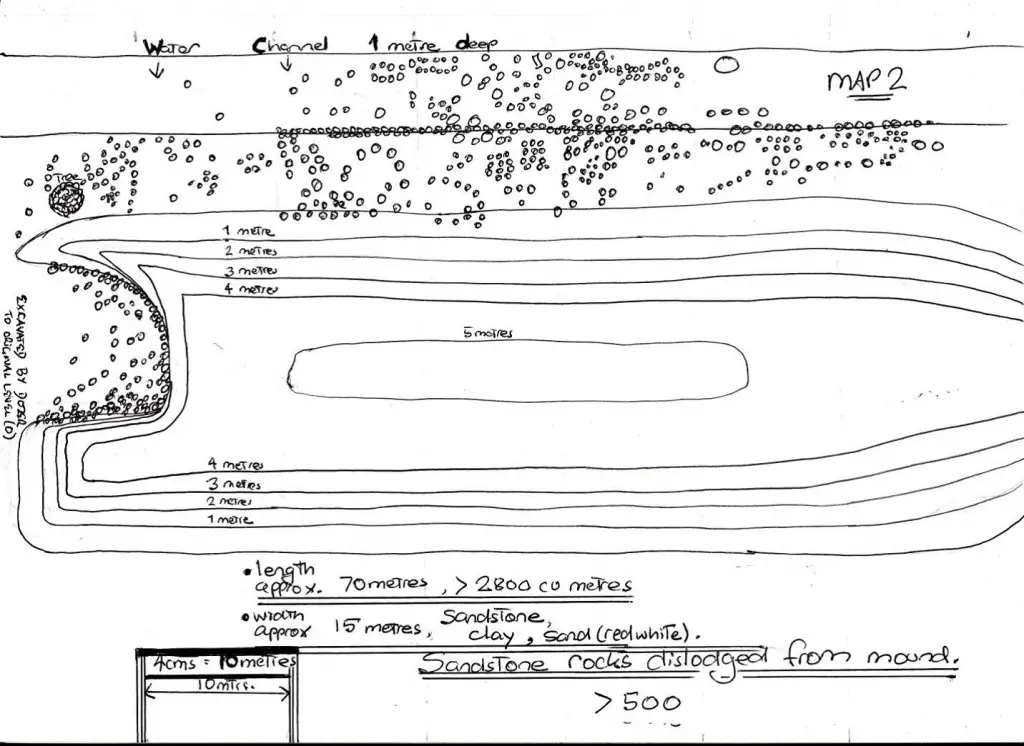 Water Channel 1 metre deep
MAP 2
Tree
1 metre
2 metres
3 metres
4 metres
5 metres
EXCAVATED BY DOZER
TO ORIGINAL LEVEL (0)
4 metres
3 metres
2 metres
1 metre
• length
approx. 70 metres, > 2800 cu metres
• width
approx 15 metres, Sandstone,
clay, sand (red white).
4cms = 10 metres
10 mtrs.
Sandstone rocks dislodged from mound.
> 500